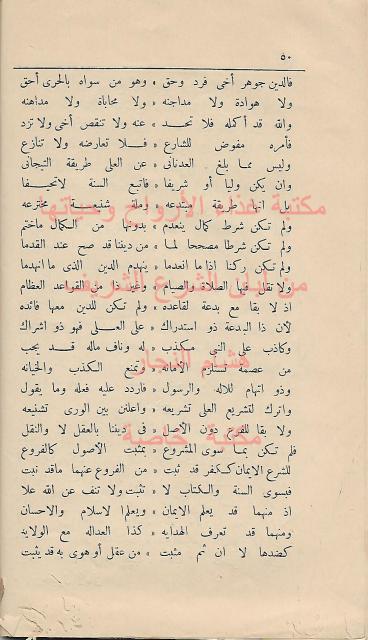 ٥٠
فالدين جوهر أخى فرد وحق * وهو من سواه بالحرى أحق
ولا هوادة ولا مداجنه * ولا محاباة ولا مداهنه
والله قد أكمله فلا تحد * عنه ولا تنقص أخى ولا تزد
فأمره مفوض للشارع * فلا تعارضه ولا تنازع
وليس مما بلغ العدنانى * عن العلى طريقة التيجانى
وان يكن وليا أو شريفا * فاتبع السنة لا تحيفا
بل انها طريقة مبتدعه * وملة شنيعة مخترعه
ولم تكن شرط كمال ينعدم * بدونها من الكمال ماختم
ولم تكن شرطا مصححا لما * من ديننا قد صح عند القدما
ولم تكن ركنا اذا ما انعدما * ينهدم الدين الذى ما انهدما
ولا تقل فيها الصلاة والصيام * وغير ذا من القواعد العظام
اذ لا بقا مع بدعة لقاعده * ولم تكن للدين معها فائده
لأن ذا البدعة ذو استدراك * على العلى فهو ذو اشراك
وكاذب على النبي مكذب * له وناف ماله قد يجب
من عصمة تستلزم الأمانه * وتمنع الكذب والخيانه
وذو اتهام للاله والرسول * فاردد عليه فعله وما يقول
واترك لتشريع العلى تشريعه * وأعلنن بين الورى تشنيعه
ولا بقا للفرع دون الأصل * فى ديننا بالعقل لا والنقل
فلم تكن بما سوى المشروع * بمثبت الأصول كالفروع
للشرع الايمان ككفر قد ثبت * من الفروع عنهما ماقد نبت
فبسوى السنة والكتاب لا * تثبت ولا تنف عن الله علا
اذ منهما قد يعلم الايمان * ويعلم الاسلام والاحسان
ومنهما قد تعرف الهدايه * كذا العداله مع الولايه
كضدها لا ان ثم مثبت * من عقل أو هوى به قد يثبت
مكتبة غذاء الأرواح وحياتها
من
الشرع الشريف
هشام النجار
مكتبة خاصة